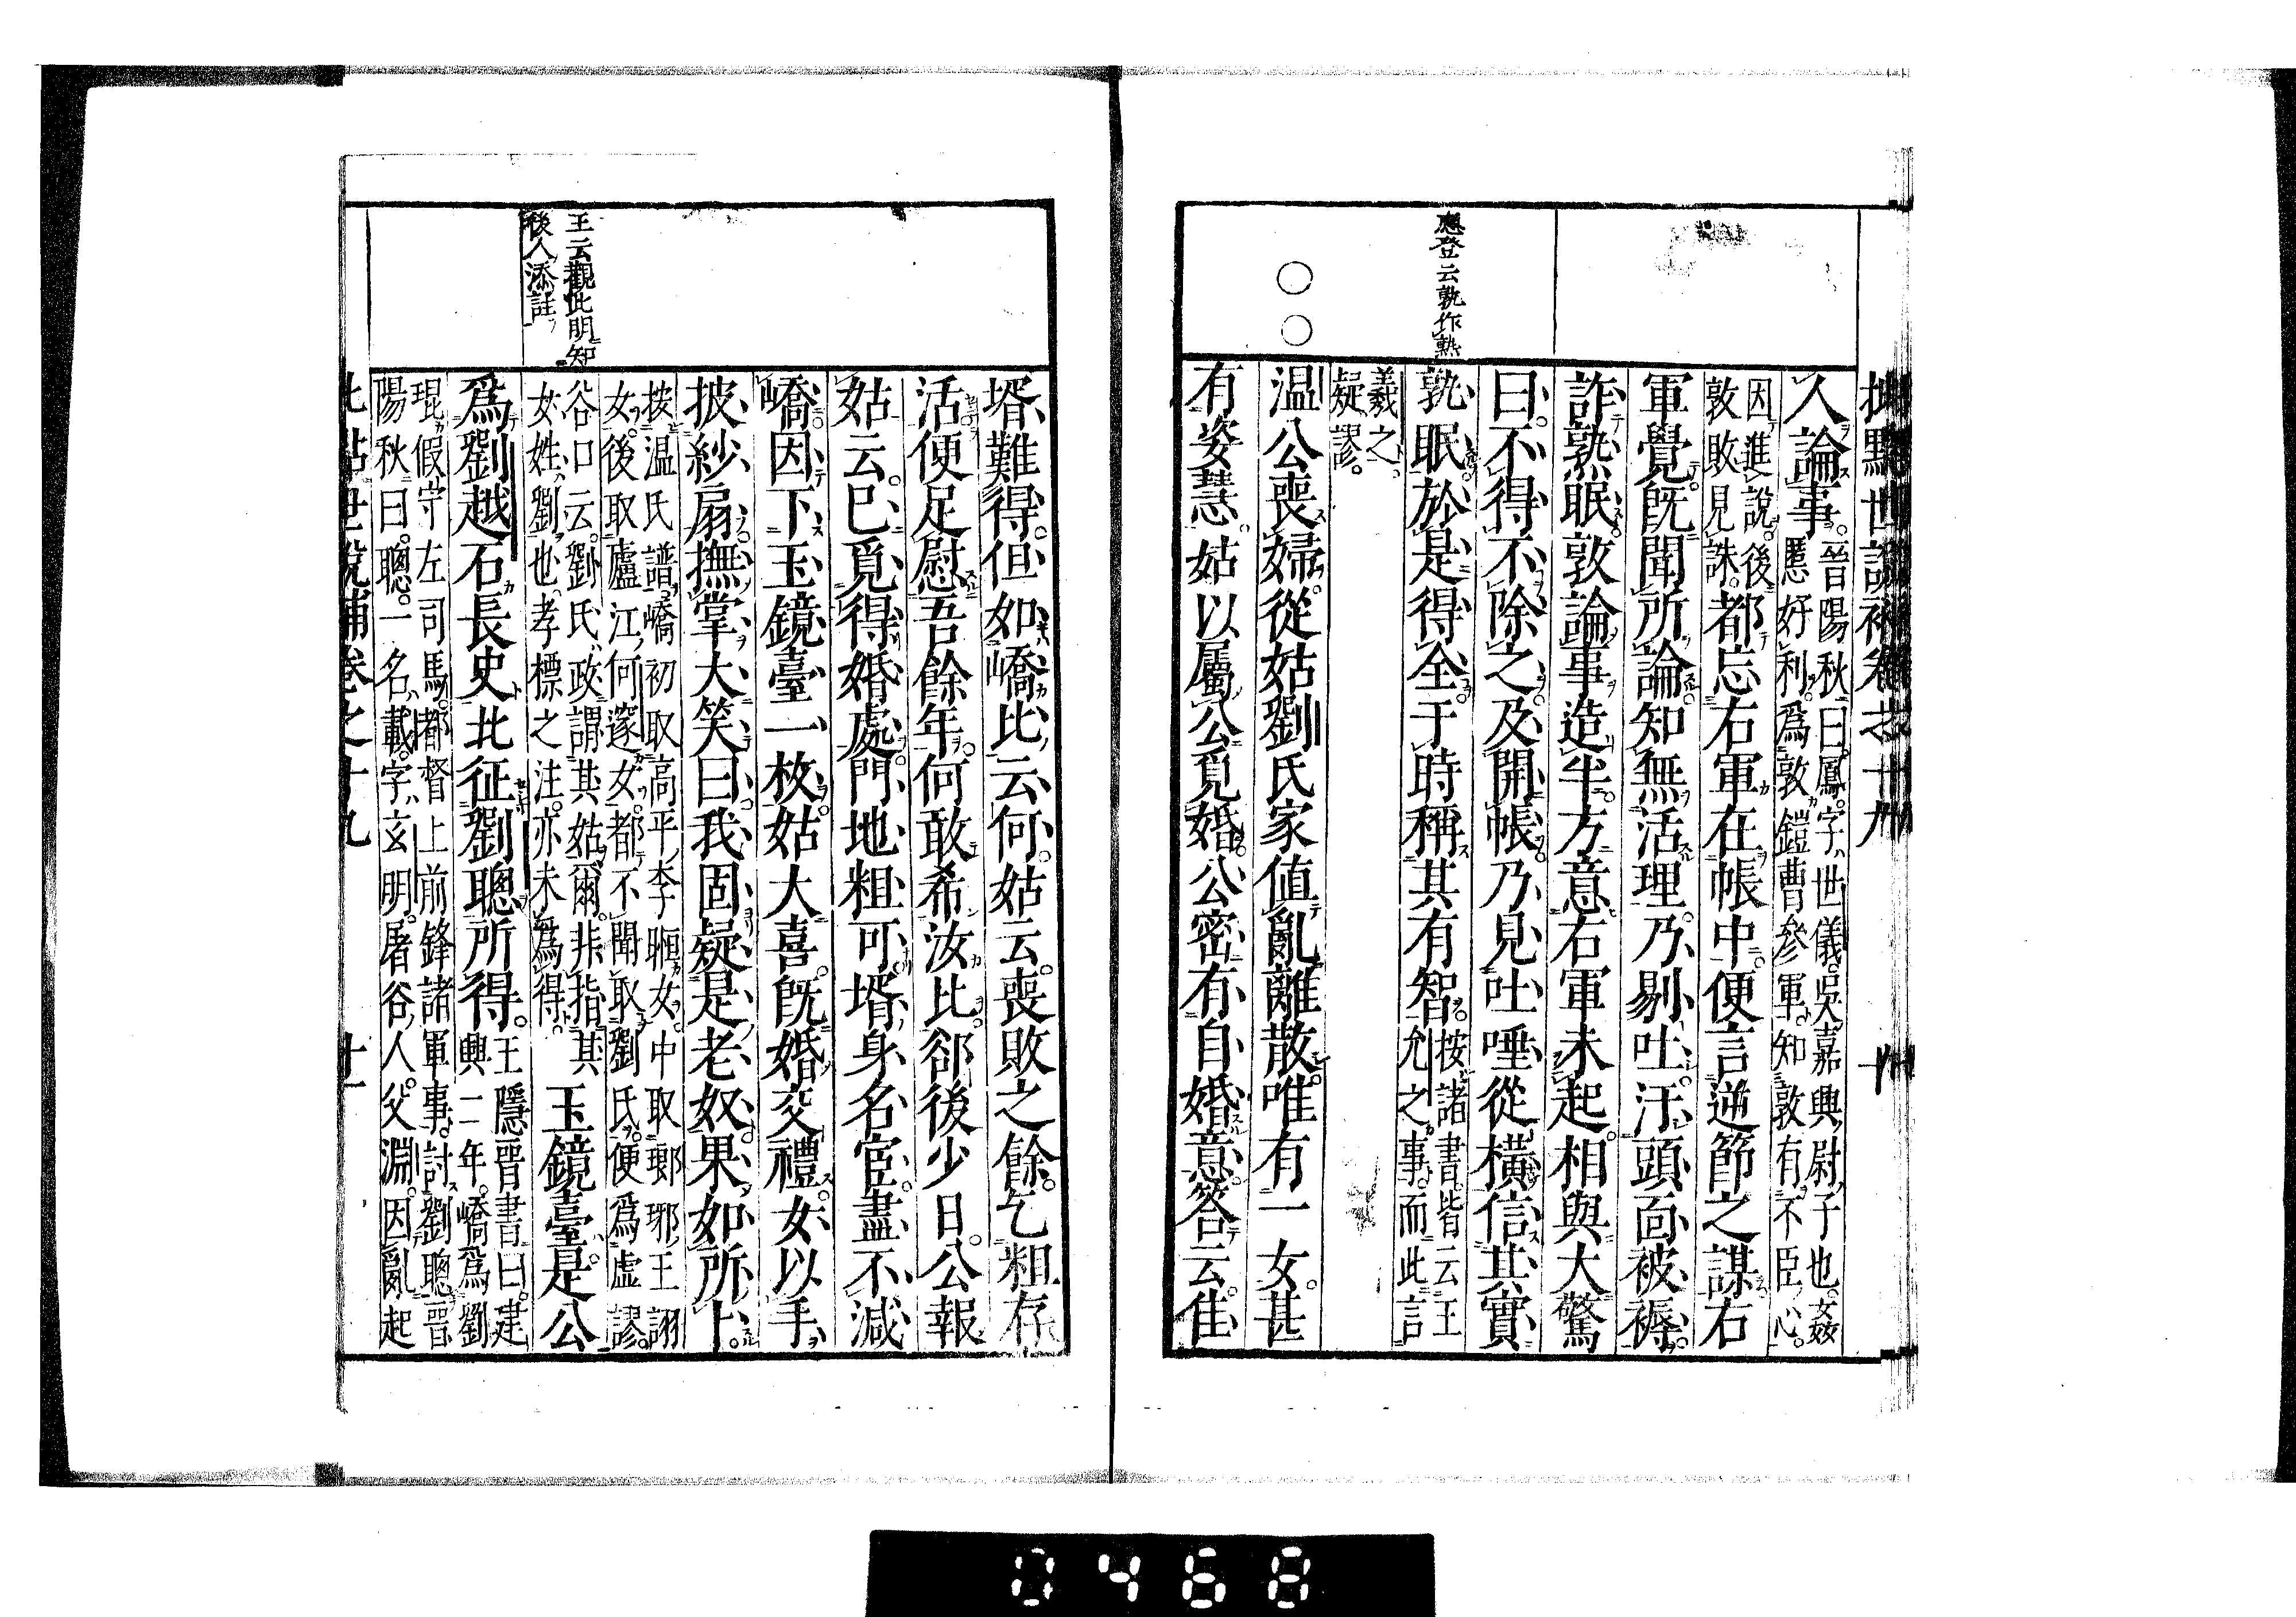 批點世說補卷之十九　十
人論事。晉陽秋曰。鳳。字世儀。吳嘉興尉子也。姦
慝好利。為敦鎧曹參軍。知敦有不臣心。
因進說。後
敦敗見誅。都忘右軍在帳中。便言逆節之謀。右
軍覺。既聞所論。知無活理。乃剔吐汙頭面被褥。
詐熟眠。敦論事造半。方意右軍未起。相與大驚
曰。不得不除之。及開帳。乃見吐唾從橫。信其實
孰眠。於是得全。于時稱其有智。按諸書。皆云王
允之事。而此言
羲之。
疑謬。
應登云孰作熟
○○
温公喪婦。從姑劉氏家值亂離散。唯有一女。甚
有姿慧。姑以屬公覓婚。公密有自婚意。答云。佳
壻難得。但如嶠比云何。姑云。喪敗之餘。乞粗存
活。便足慰吾餘年。何敢希汝比。郤後少日。公報
姑云。已覓得婚處。門地粗可。壻身名宦。盡不減
嶠。因下玉鏡臺一枚。姑大喜。既婚交禮。女以手
披紗扇。撫掌大笑曰。我固疑是老奴。果如所卜。
按温氏譜。嶠初取高平李暅女。中取瑯琊王詡
女。後取廬江何邃女。都不聞取劉氏。便為虛謬。
谷口云。劉氏。政謂其姑爾。非指其
女姓劉也。孝標之注。亦未為得。
玉鏡臺。是公
為劉越石長史。北征劉聰所得。王隱晉書曰。建
興二年。嶠為劉
琨假守左司馬。都督上前鋒諸軍事。討劉聰。晉
陽秋曰。聰。一名載。字玄明。屠谷人。父淵。因亂起
王云觀此明知
後人添註
批點世說補卷之十九　十一
0468